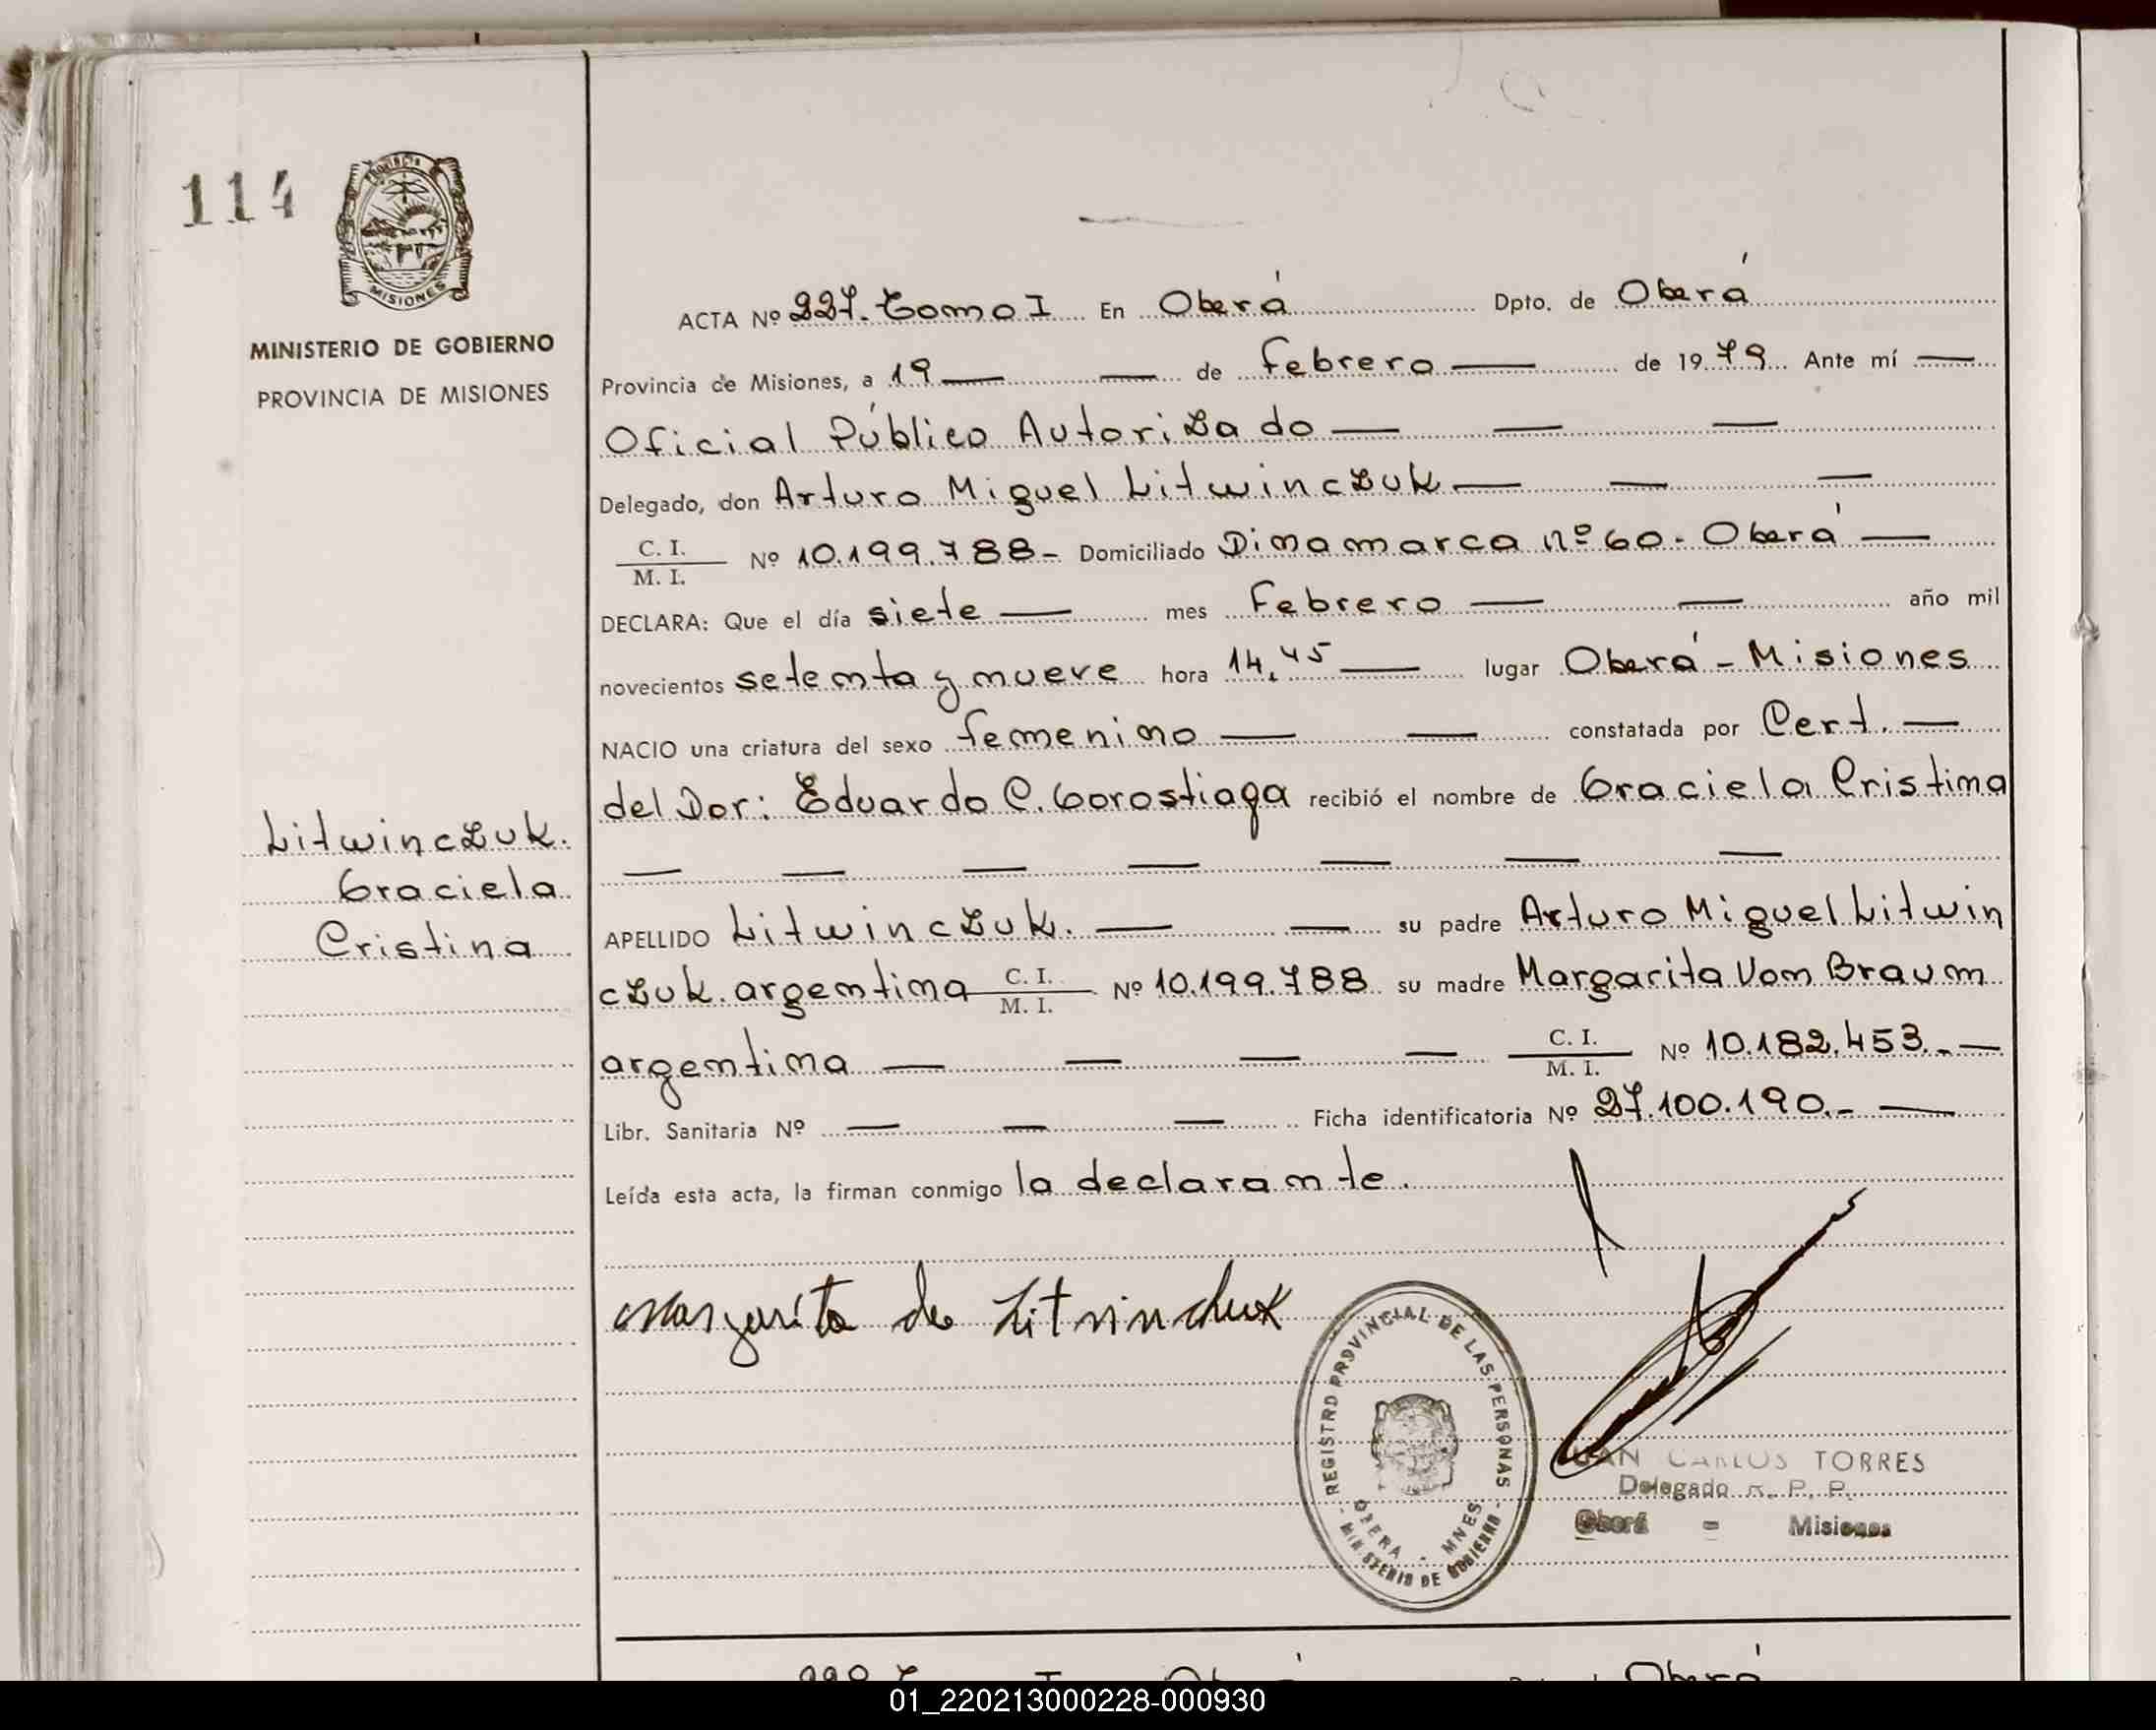 114
Provincia
MISIONES
MINISTERIO DE GOBIERNO
PROVINCIA DE MISIONES
Litwinczuk.
Graciela
Cristina
ACTA Nº 227. Tomo I En Oberá Dpto. de Oberá
Provincia de Misiones, a 19 — — de febrero — de 19 79 Ante mí —
Oficial Público Autorizado — — —
Delegado, don Arturo Miguel Litwinczuk — — —
C. I.
M. I.
Nº 10.199.788 - Domiciliado Dinamarca nº 60 - Oberá —
DECLARA: Que el día siete — mes febrero — — año mil
novecientos setenta y nueve hora 14.45 — lugar Oberá - Misiones
NACIO una criatura del sexo femenino — — constatada por Cert. —
del Dor: Eduardo C. Gorostiaga recibió el nombre de Graciela Cristina
— — — — — — —
APELLIDO Litwinczuk. — — su padre Arturo Miguel Litwin
czuk. argentina C. I. M. I. Nº 10.199.788 su madre Margarita Von Braun
argentina — — — — C. I. M. I. Nº 10.182.453. - —
Libr. Sanitaria Nº — — — Ficha identificatoria Nº 27.100.190. - —
Leída esta acta, la firman conmigo la declarante.
Margarita de Litvinchuk
REGISTRO PROVINCIAL DE LAS PERSONAS
OBERA - MNES
- MINISTERIO DE GOBIERNO -
JUAN CARLOS TORRES
Delegado R. P. P.
Oberá - Misiones
228 Tomo I Oberá Oberá
01_220213000228-000930